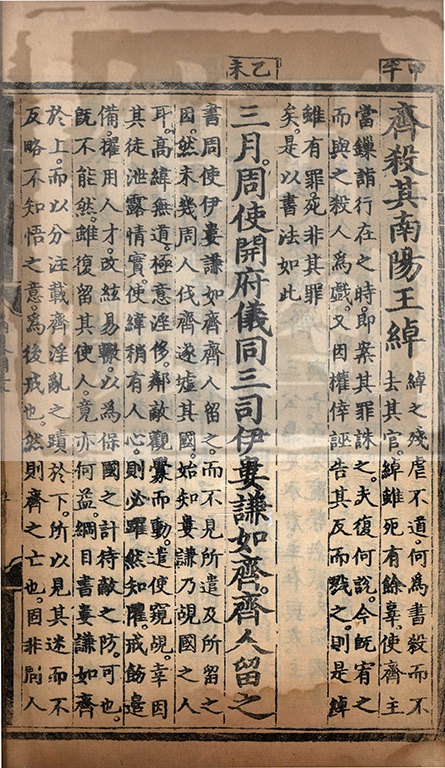 甲午
齊殺其南陽王綽
綽之殘虐不道。何為書殺而不
去其官。綽雖死有餘辜。使齊主
當鏁詣行在之時。即案其罪誅之。夫復何說。今既宥之。
而與之殺人為戲。又因權倖誣告其反而戮之。則是綽
雖有罪。死非其罪
矣。是以書法如此
乙未
三月。周使開府儀同三司伊婁謙如齊。齊人留之
書周使伊婁謙如齊。齊人留之。而不見所遣及所留之
因。然未幾周人伐齊。遂墟其國。始知婁謙乃覘國之人
耳。高緯無道。極意淫侈。鄰敵觀釁而動。遣使窺覘。幸因
其徒泄露情實。使緯稍有人心。則必躍然知懼。戒飭邊
備。擢用人才。改絃易轍。以為保國之計。待敵之防。可也。
既不能然。雖復留其使人。竟亦何益。綱目書婁謙如齊
於上。而以分注載齊淫亂之蹟於下。所以見其迷而不
反。略不知悟之意。為後戒也。然則齊之亡也。固非周人